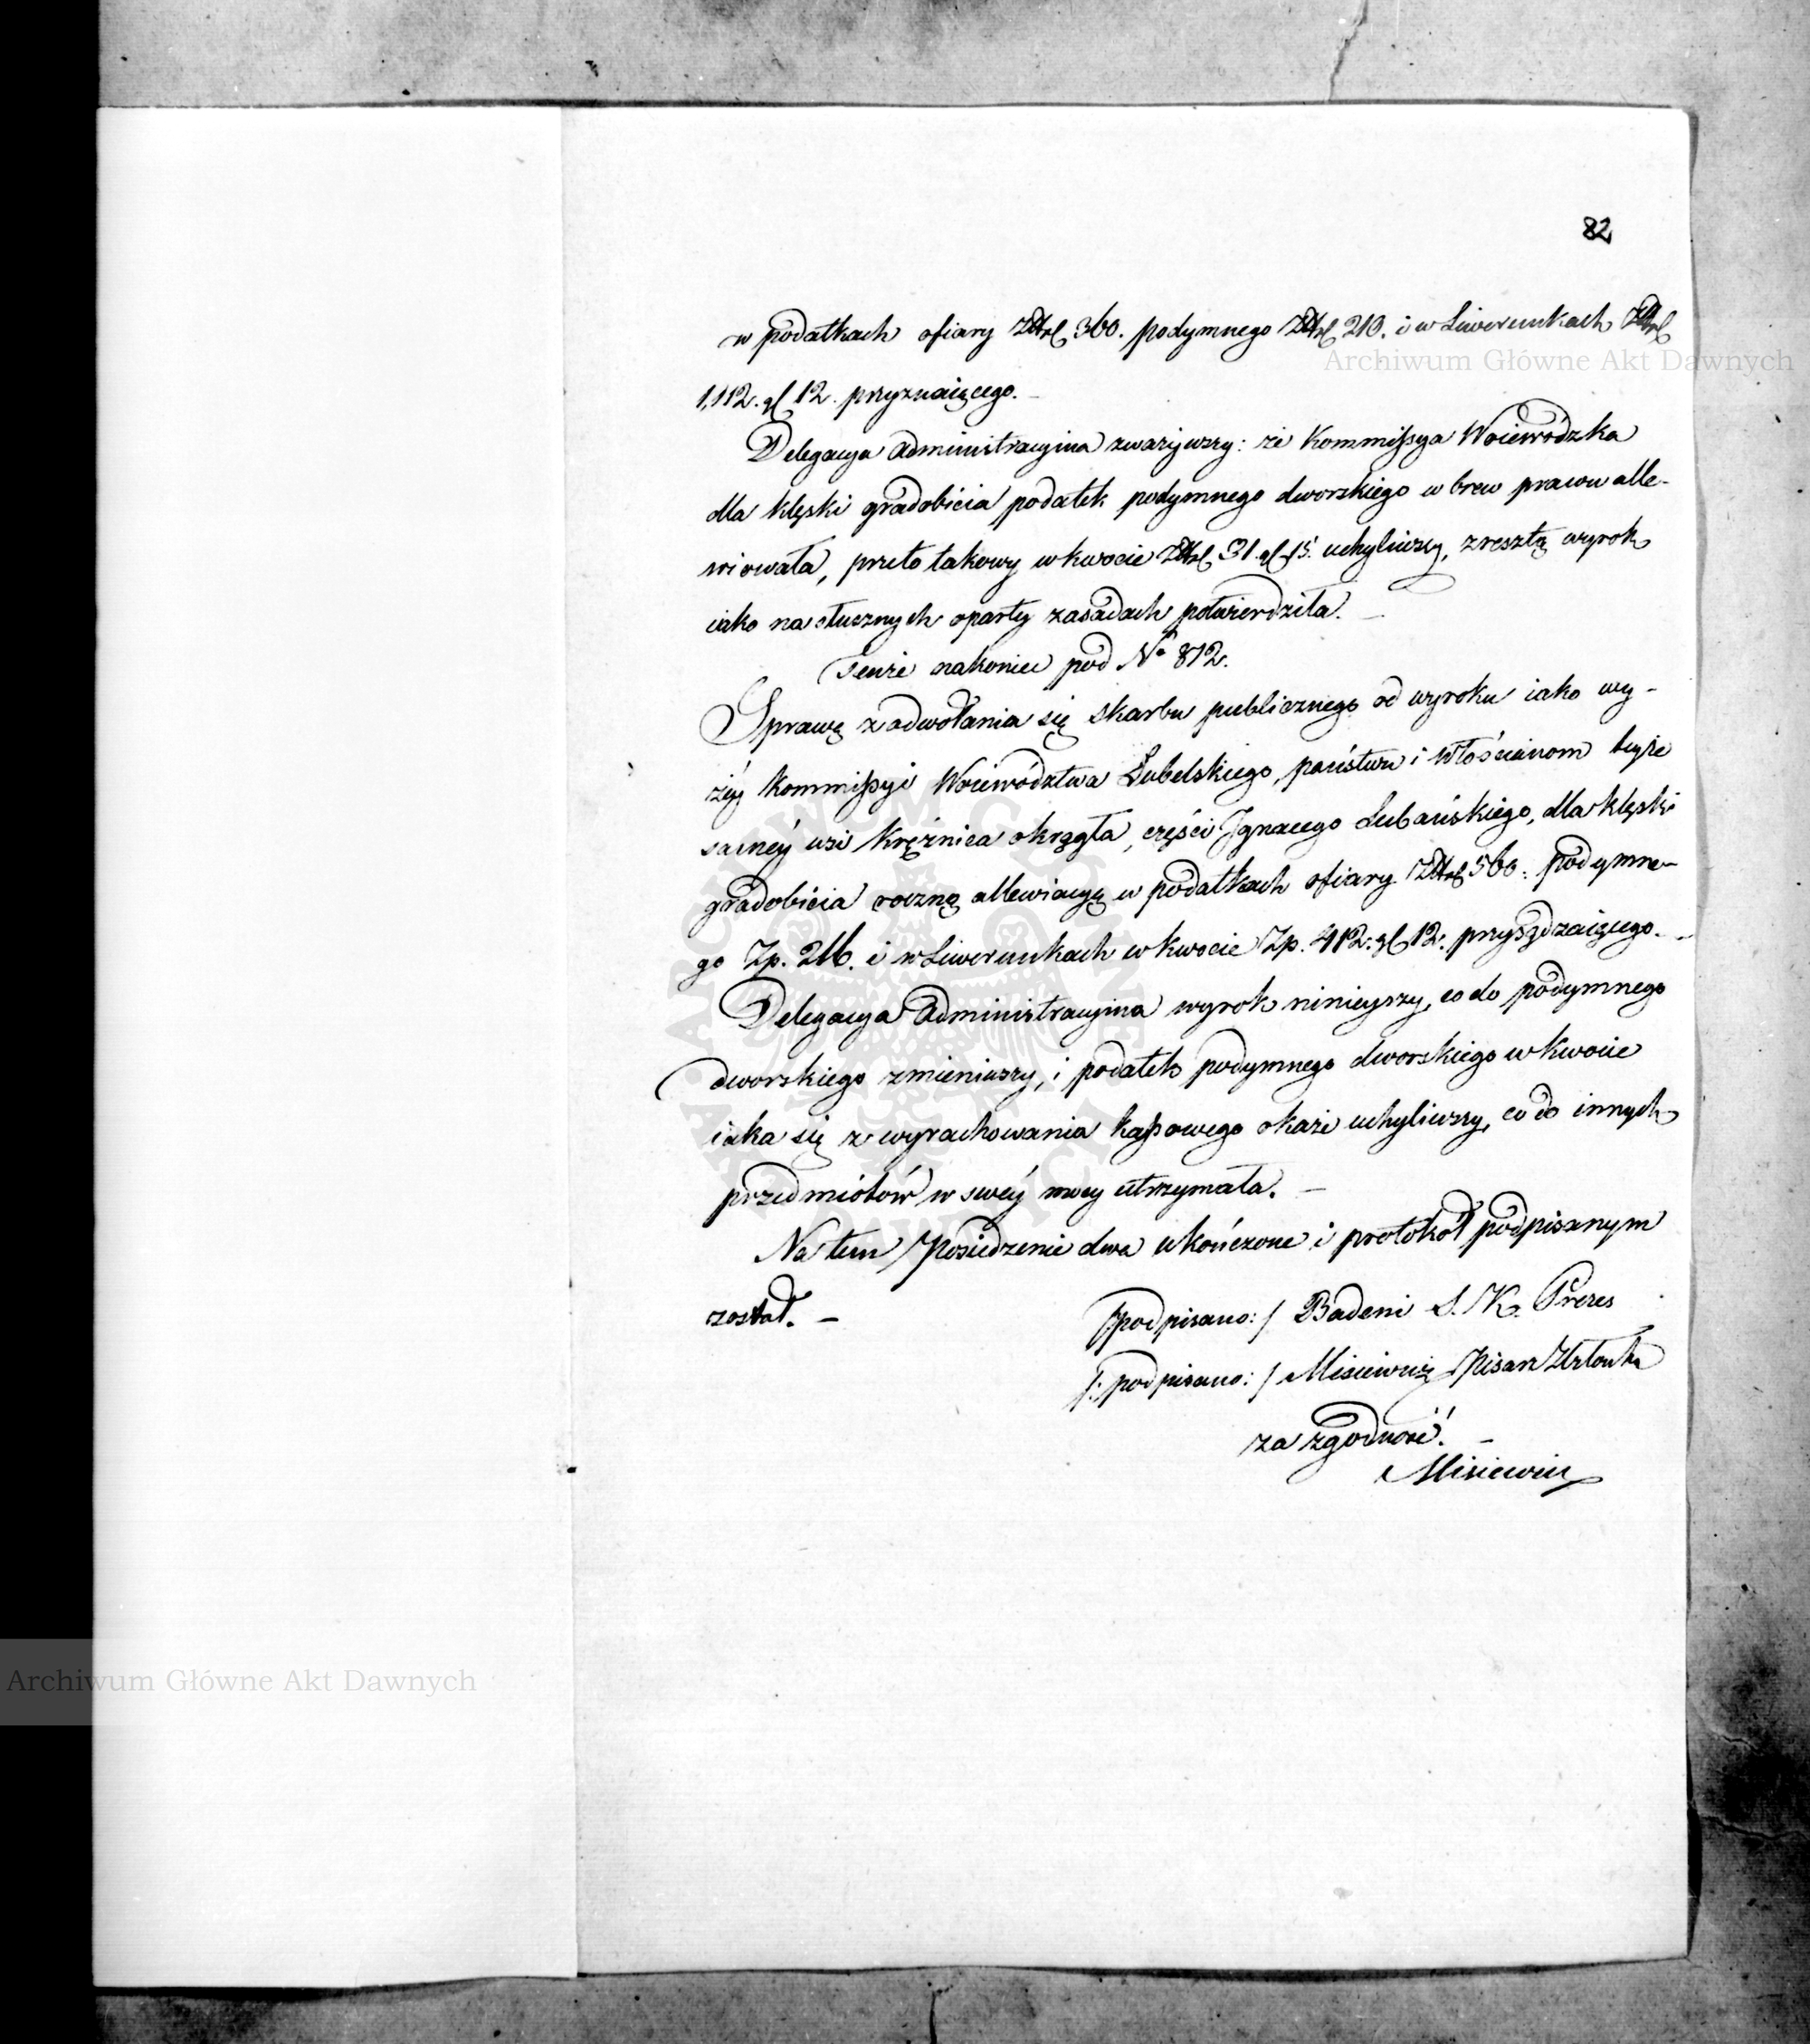 82
w podatkach ofiary Złtpl 360. podymnego Złtpl 210. i w Liwerunkach Złtpl
Archiwum Główne Akt Dawnych
1,112. gl 12. przyznaiącego. _
Delegacya administracyina zważywszy: że Kommissya Woiewódzka
dla klęski gradobicia podatek podymnego dworskiego w brew prawu alle-
wiowała, przeto takowy w kwocie Złtpl 31. gl 15. uchyliwszy, zresztą wyrok
iako na słusznych oparty zasadach potwierdziła. _
Tenże nakoniec pod No 872.
Sprawę z odwołania się skarbu publicznego od wyroku iako wy-
żéy Kommissyi Woiewództwa Lubelskiego, państwu i Włościanom teyże
saméy wsi Krężnica okrągła, części Ignacego Lubańskiego, dla klęski
gradobicia roczną allewiacyę w podatkach ofiary Złtpl 560. podymne-
go Zp. 216. i w Liwerunkach w kwocie Zp. 412. gl 12. przysądzaiącego. _
Delegacya Administracyina wyrok ninieyszy, co do podymnego
dworskiego zmieniwszy, i podatek podymnego dworskiego w kwocie
iaka się z wyrachowania kassowego okaże uchyliwszy, co do innych
przedmiotów w swéy mocy utrzymała. _
Na tem Posiedzenie dwa ukończone i protokół podpisanym
został. _
/:podpisano:/ Badeni S. K. Prezes
/:podpisano:/ Misiewicz Pisarz
za zgodność. _
Misiewicz
Archiwum Główne Akt Dawnych